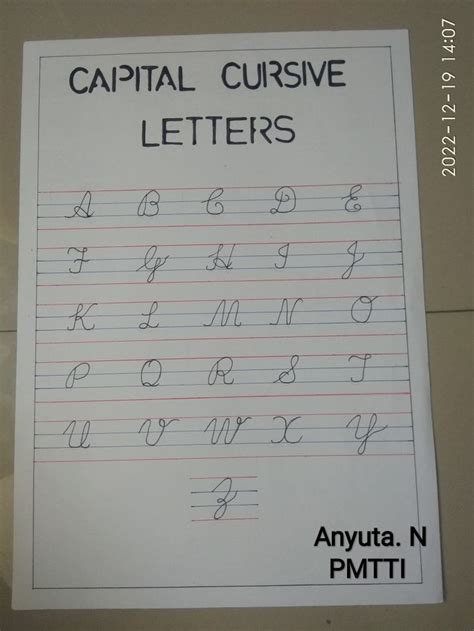 2022-12-19 14:07
CAPITAL CURSIVE
LETTERS
A B C D E
F G H I J
K L M N O
P Q R S T
U V W X Y
Z
Anyuta. N
PMTTI